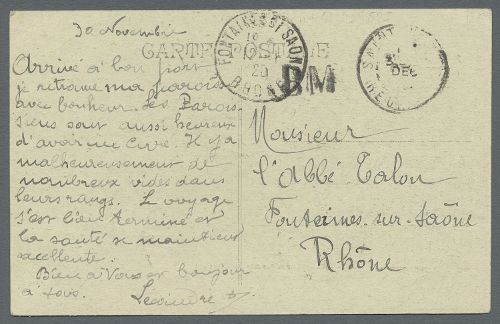 30 Novembre
CARTE POSTALE
Arrivé à bon port
je retrouve ma paroisse
avec bonheur. Les Parois-
siens sont aussi heureux
d'avoir un Curé. Il y a
malheureusement de
nombreux vides dans
leurs rangs. Le voyage
s'est bien terminé et
la santé se maintient
excellente.
Bien à Vous et bonjour
à tous.
FONTAINES-S-SAONE
20
RHONE
BM
SAINT
DEC
Monsieur
l'Abbé Talon
Fontaines-sur-Saône
Rhône